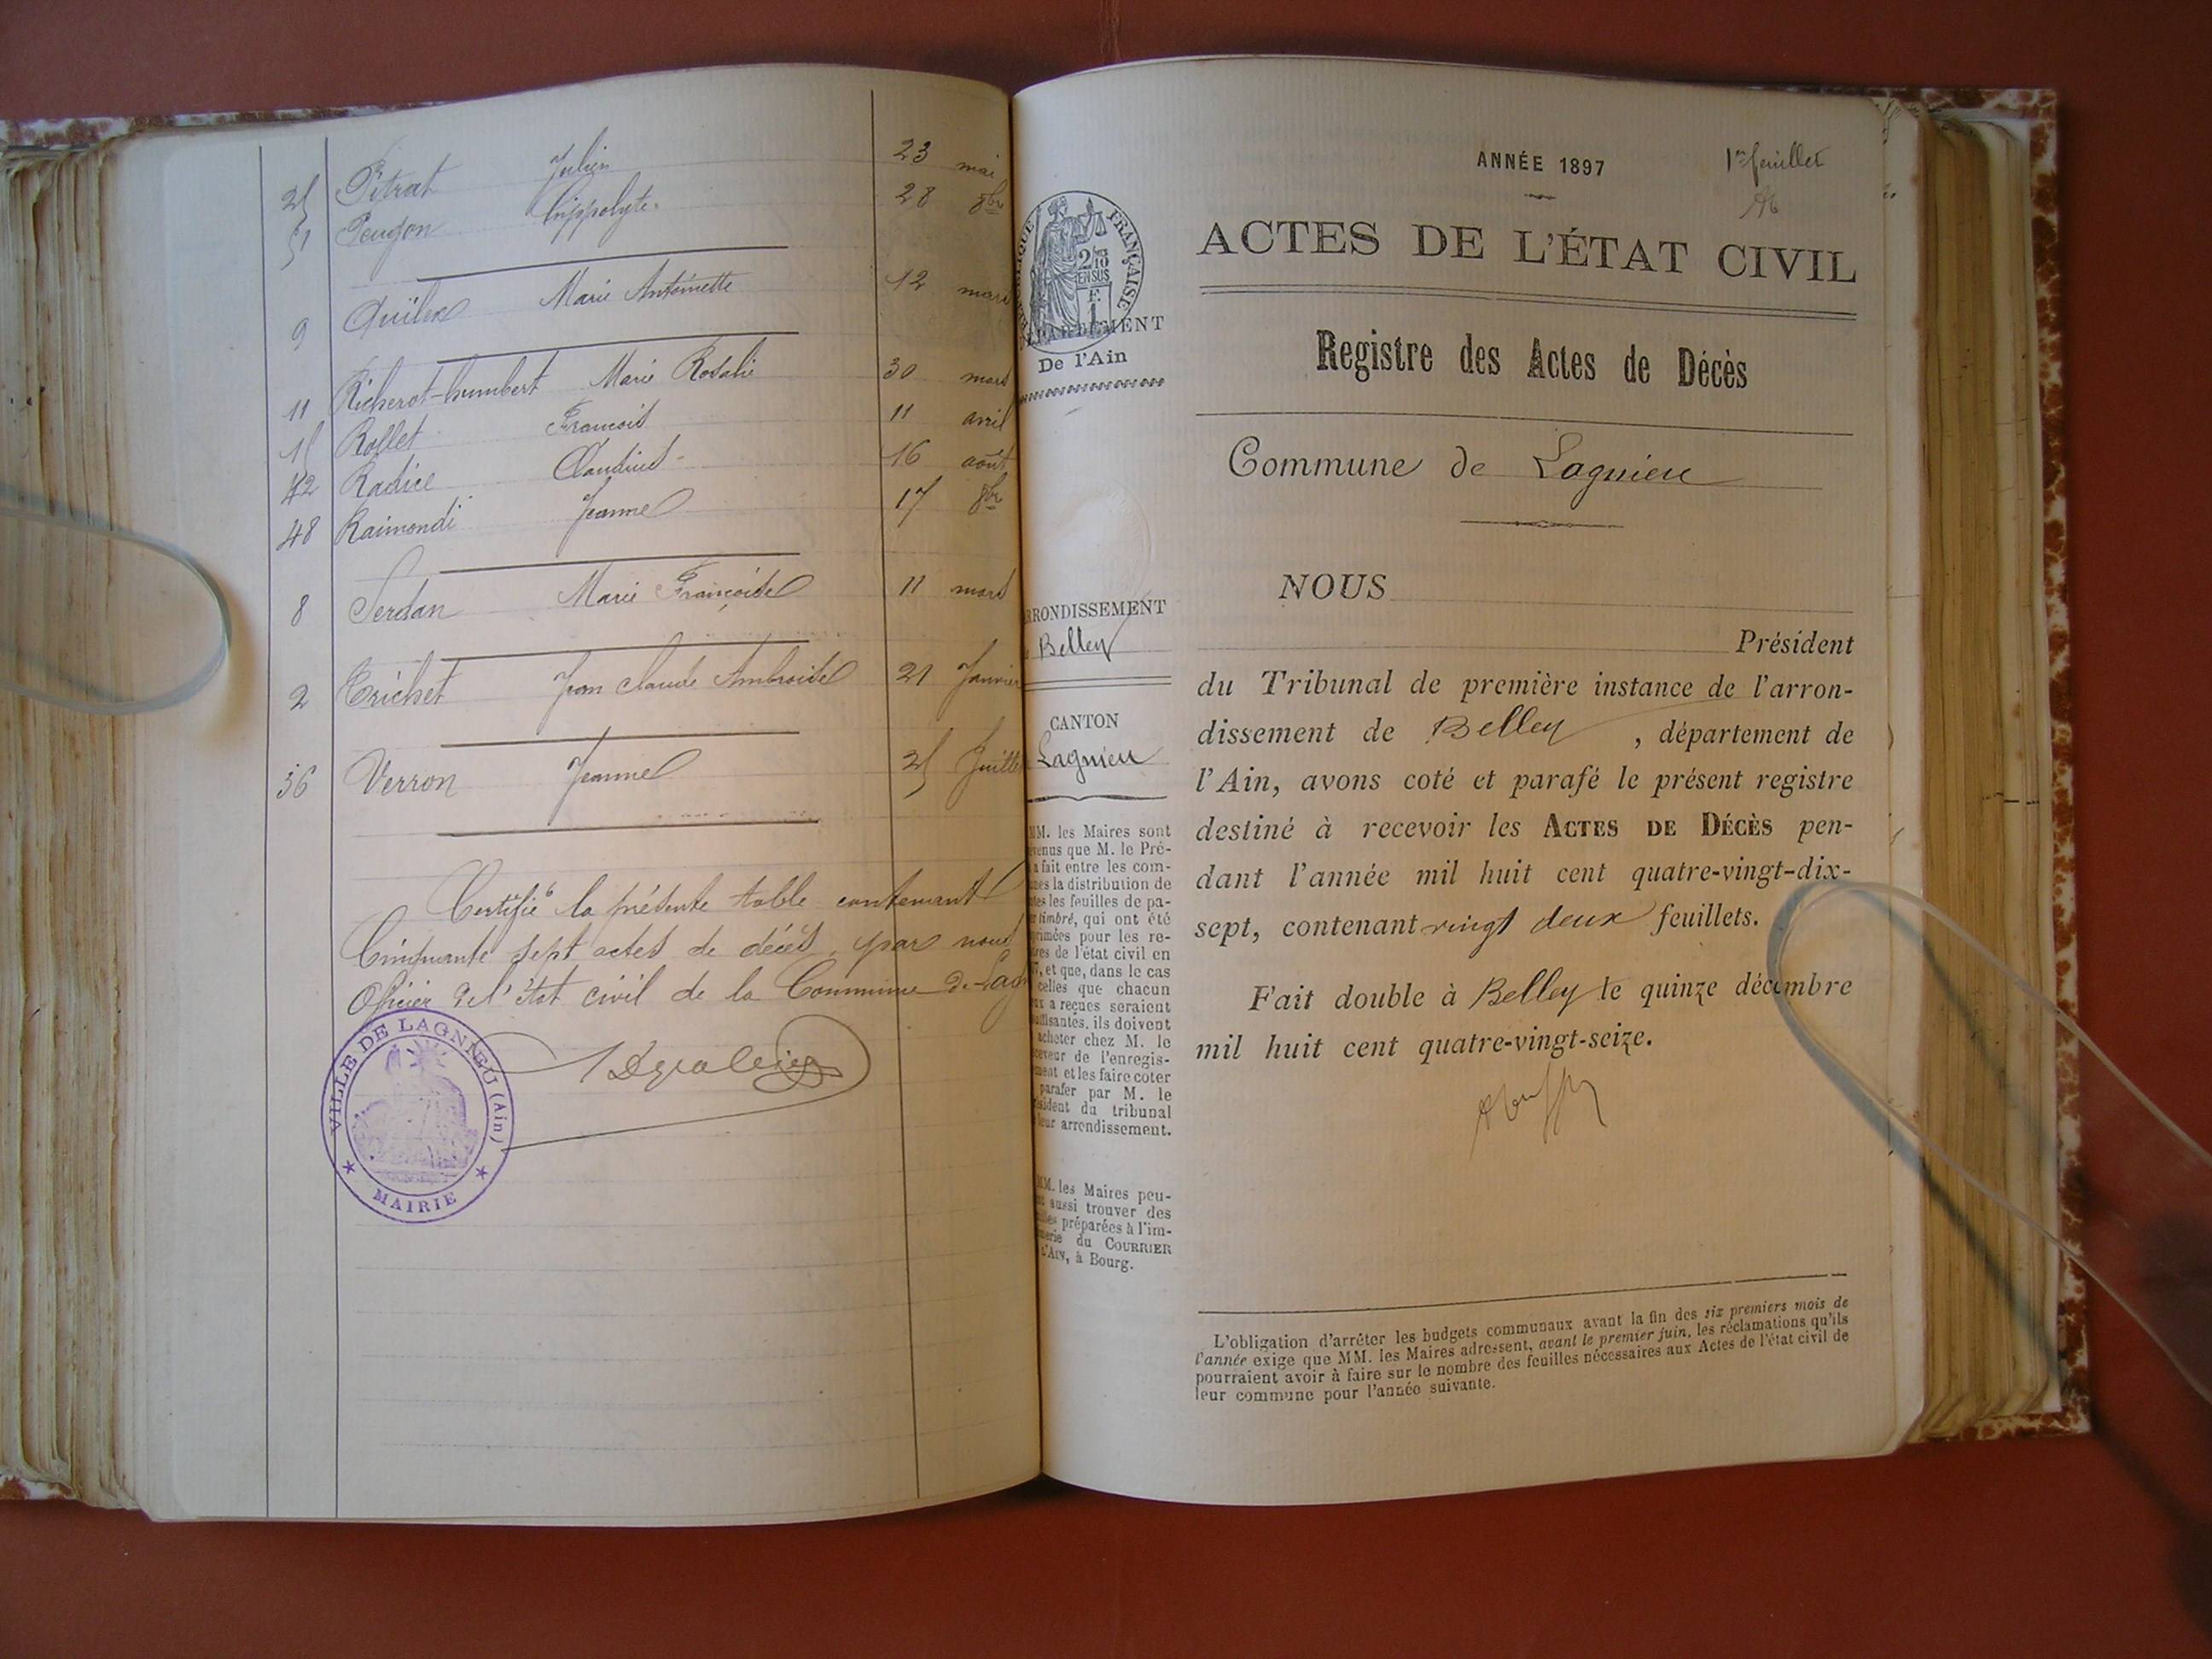 25 Pitrat Julien 23 mai
51 Peugon hippolyte 28 8bre
9 Quilex Marie Antoinette 12 mars
11 Richerot-humbert Marie Rosalie 30 mars
15 Rollet Francois 11 avril
42 Radice Claudius 16 août
48 Raimondi Jeanne 17 8bre
8 Serdan Marie Françoise 11 mars
2 Trichet Jean Claude Ambroise 21 Janvier
36 Verron Jeanne 25 Juillet
Certifié la présente table contenant
Cinquante sept actes de décès, par nous
Officier de l'état civil de la Commune de Lag
VILLE DE LAGNIEU (Ain)
MAIRIE
ANNÉE 1897
1er feuillet
ACTES DE L'ÉTAT CIVIL
RÉPUBLIQUE FRANÇAISE
2/10 EN SUS
F. 1
DÉPARTEMENT
De l'Ain
Registre des Actes de Décès
Commune de Lagnieu
ARRONDISSEMENT
Belley
CANTON
Lagnieu
MM. les Maires sont
prévenus que M. le Pré-
a fait entre les com-
munes la distribution de
toutes les feuilles de pa-
timbré, qui ont été
imprimées pour les re-
gistres de l'état civil en
, et que, dans le cas
celles que chacun
a reçues seraient
insuffisantes, ils doivent
acheter chez M. le
receveur de l'enregis-
trement et les faire coter
parafer par M. le
Président du tribunal
leur arrondissement.
MM. les Maires peu-
aussi trouver des
préparées à l'im-
primerie du COURRIER
L'AIN, à Bourg.
NOUS
Président
du Tribunal de première instance de l'arron-
dissement de Belley, département de
l'Ain, avons coté et parafé le présent registre
destiné à recevoir les ACTES DE DÉCÈS pen-
dant l'année mil huit cent quatre-vingt-dix-
sept, contenant vingt deux feuillets.
Fait double à Belley le quinze décembre
mil huit cent quatre-vingt-seize.
L'obligation d'arrêter les budgets communaux avant la fin des six premiers mois de
l'année exige que MM. les Maires adressent, avant le premier juin, les réclamations qu'ils
pourraient avoir à faire sur le nombre des feuilles nécessaires aux Actes de l'état civil de
leur commune pour l'année suivante.